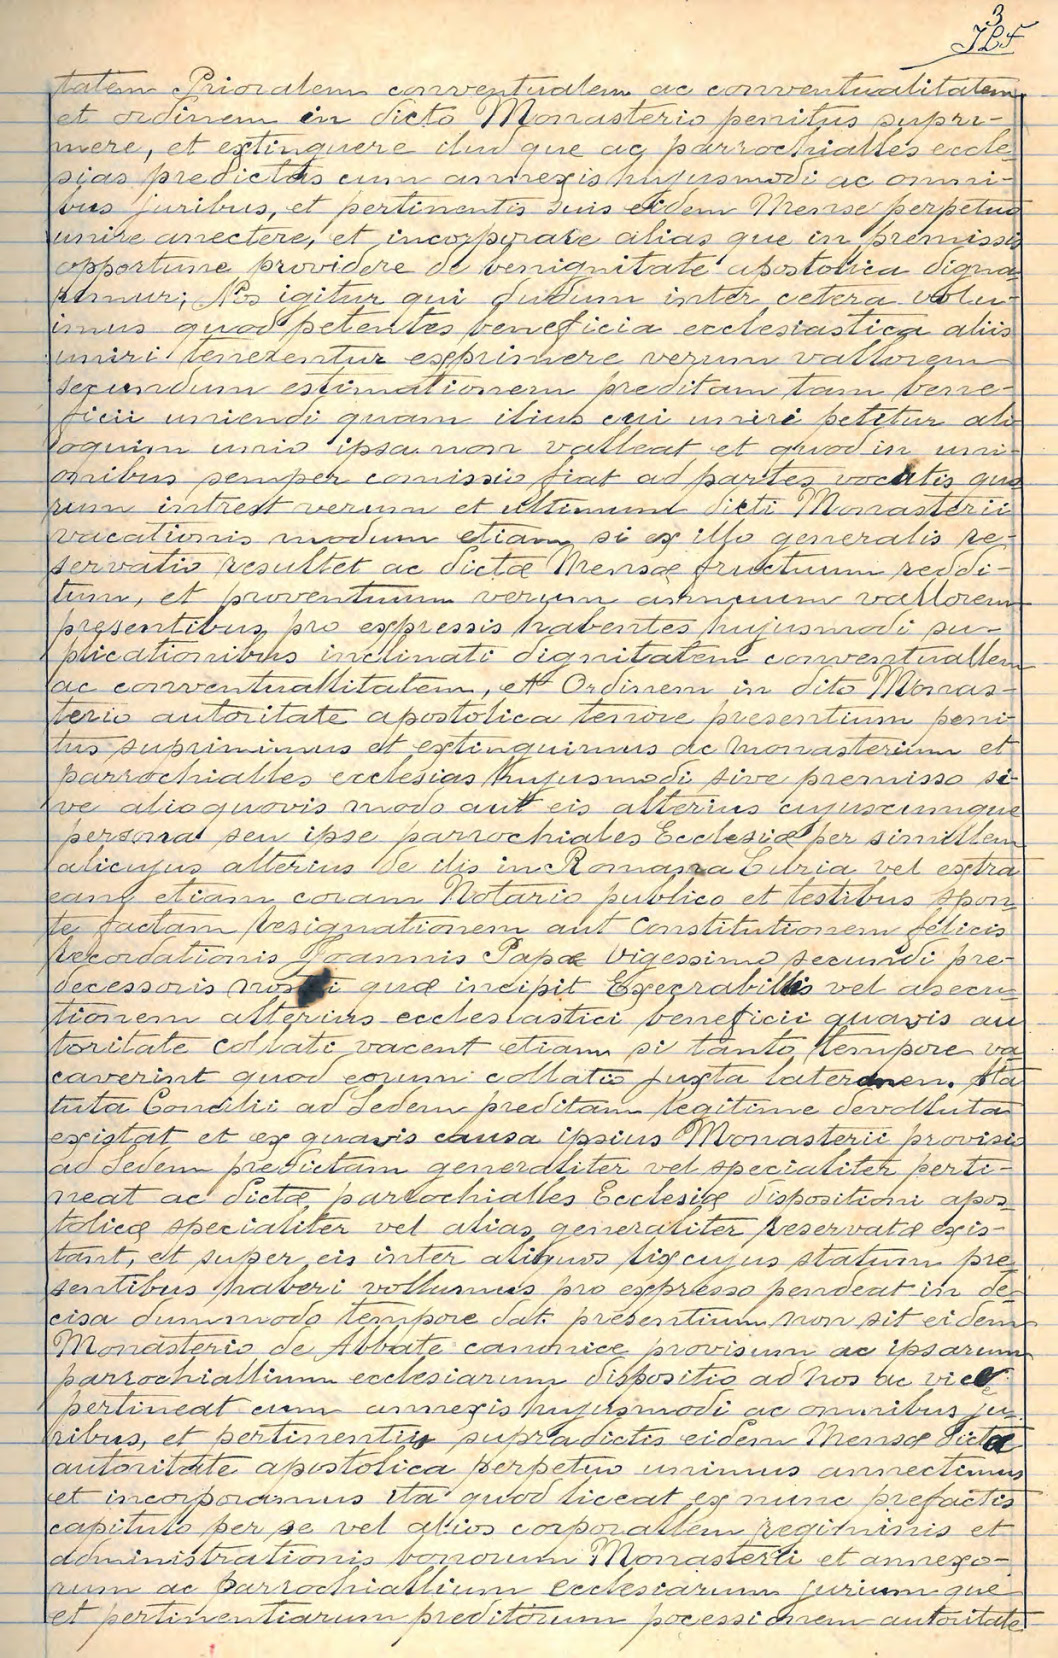 3
tatem Prioralem conventualem ac conventualitatem
et ordinem in dicto Monasterio penitus supri-
mere, et extinguere ilud que ac parrochialles eccle-
sias predictas cum annexis hujusmodi ac omni-
bus juribus, et pertinentis suis eidem Mense perpetuo
unire anectere, et incorporare alias que in premissis
opportune providere de benignitate apostolica digna
remur; Nos igitur qui dudum inter cetera volu-
imus quod petentes beneficia ecclesiastica aliis
uniri tenerentur exprimere verum vallorem
secundum estimationem preditam tam bene-
ficii uniendi quam ilius cui uniri petitur ali
oquim unio ipsa non valleat et quod in uni-
onibus semper comissio fiat ad partes vocatis quo
rum intrest verum et ultimum dicti Monasterii
vacationis modum etiam si ex illo generalis re-
servatio resultet ac dictæ Mensæ fructuum reddi-
tum, et proventuum verum annuum vallorem
presentibus pro expressis habentes hujusmodi su-
plicationibus inclinati dignitatem conventuallem
ac conventuallitatem, et Ordinem in dito Monas-
terio autoritate apostolica tenore presentium peni-
tus suprimimus et extinguimus ac monasterium et
parrochialles ecclesias hujusmodi sive premisso si-
ve alio quovis modo aut eis alterius cujuscumque
persona seu ipse parrochiales Ecclesiæ per simillem
alicujus alterius de ilis in Romana Curia vel extra
eam etiam coram Notario publico et testibus spon
te factam resignationem aut Constitutionem felicis
recordationis Joannis Papæ Vigessimo secundi pre-
decessoris nostri quæ incipit Execrabillis vel asecu-
tionem alterius ecclesiastici beneficii quavis au
toritate collati vacent etiam si tanto tempore va
caverint quod eorum collatio juxta lateranen. Sta
tuta Concilii ad Sedem preditam legitime devolluta
existat et ex quavis causa ipsius Monasterii provisio
ad Sedem predictam generaliter vel specialiter perti-
neat ac dictæ parrochialles Ecclesiæ dispositioni apos
tolicæ specialiter vel alias generaliter reservatæ exis-
tant, et super eis inter aliquos lix cujus statum pre
sentibus haberi vollumus pro expresso pendeat in de-
cisa dummodo tempore dat. presentium non sit eidem
Monasterio de Abbate canonice provisum ac ipsarum
parrochiallium ecclesiarum dispositio ad nos ac vice
pertineat cum annexis hujusmodi ac omnibus ju-
ribus, et pertinentiis supradictis eidem Mensæ dictæ
autoritate apostolica perpetuo unimus annectimus
et incorporamus ita quod liceat ex nunc prefactis
capitulo per se vel alios corporallem regiminis et
administrationis bonorum Monasterii et annexo-
rum ac parrochiallium ecclesiarum jurium que
et pertinentiarum preditorum pocessionem autoritate